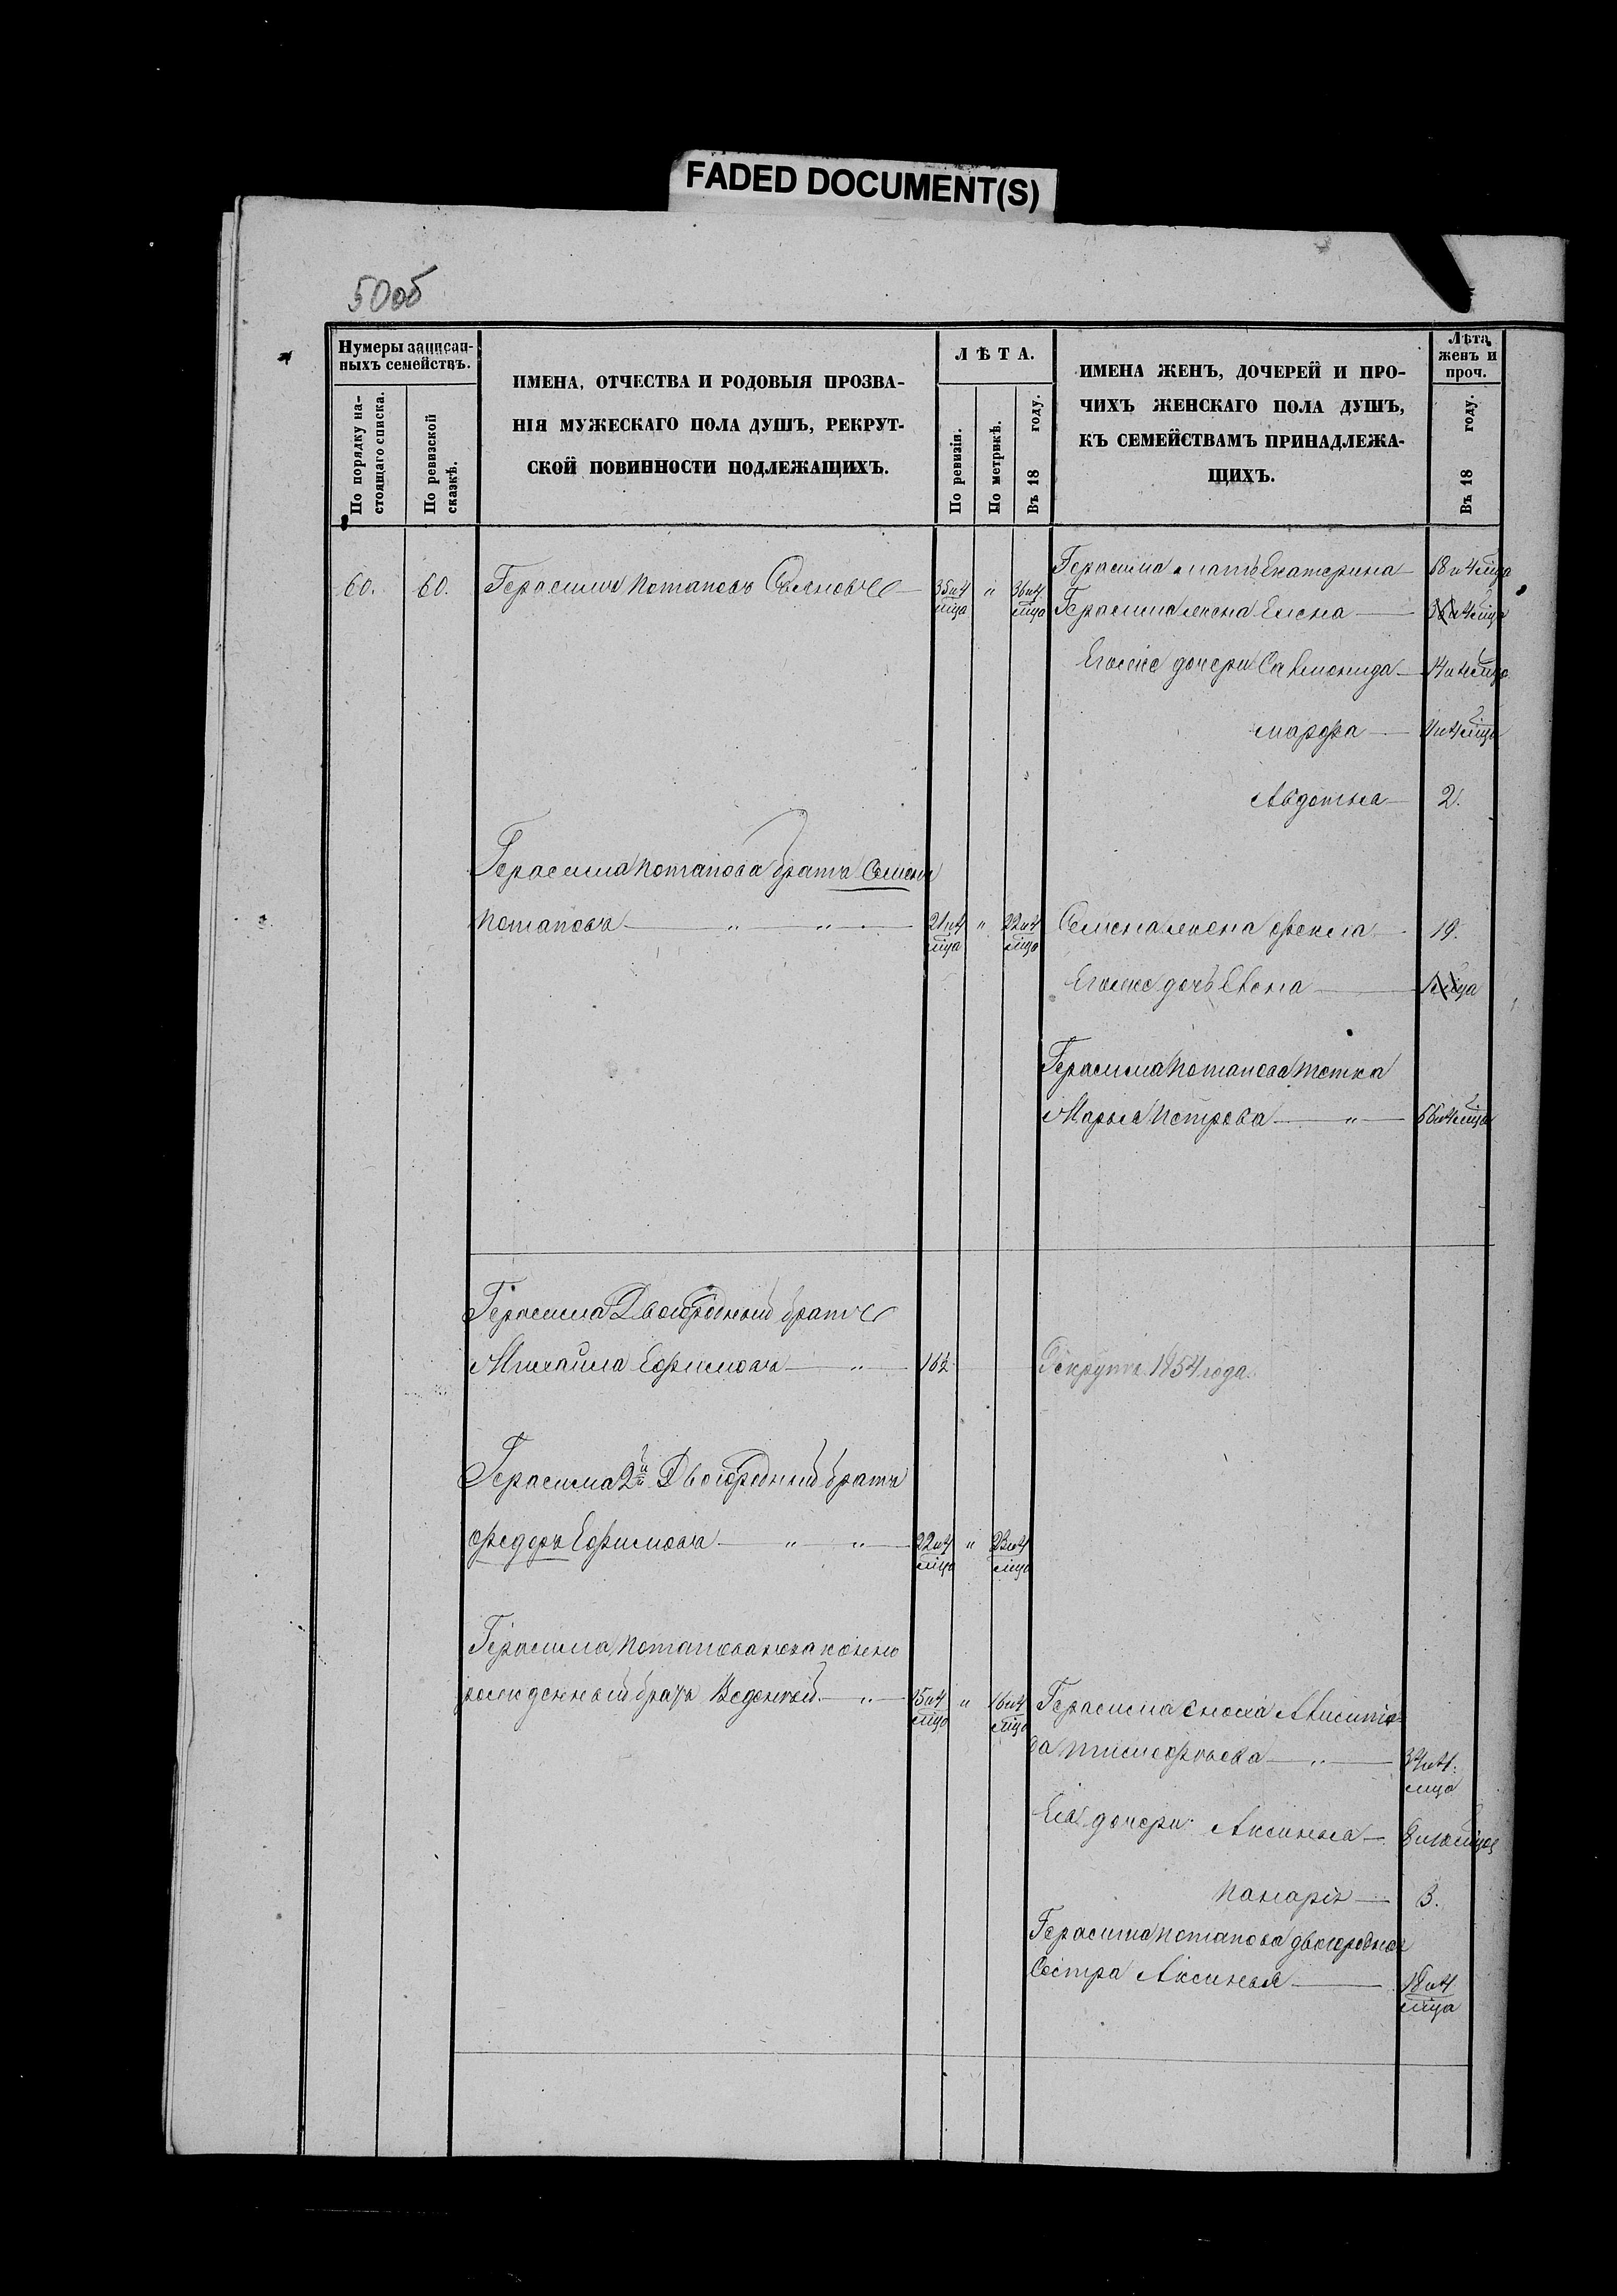 FADED DOCUMENT(S)
50об
Нумеры записан-
ныхъ семействъ.
По порядку на-
стоящаго списка.
По ревизской
сказкѣ.
ИМЕНА, ОТЧЕСТВА И РОДОВЫЯ ПРОЗВА-
НІЯ МУЖЕСКАГО ПОЛА ДУШЪ, РЕКРУТ-
СКОЙ ПОВИННОСТИ ПОДЛЕЖАЩИХЪ.
ЛѢТА.
По ревизіи.
По метрикѣ.
Въ 18 году.
ИМЕНА ЖЕНЪ, ДОЧЕРЕЙ И ПРО-
ЧИХЪ ЖЕНСКАГО ПОЛА ДУШЪ,
КЪ СЕМЕЙСТВАМЪ ПРИНАДЛЕЖА-
ЩИХЪ.
Лѣта
женъ и
проч.
Въ 18 году.
Герасима мать Екатерина 68 и 4 мца
60. 60. Герасимъ Потаповъ 35 и 4 мца " 36 и 4 мца Герасима жена Елена
Егоже дочери 14 и 4 мца
марфа
Авдотья 2.
Герасима Потапова братъ Семенъ
Потаповъ " " 21 и 4 мца " 22 и 4 мца Семена жена Фекла 19.
Егоже дочь
Герасима Потапова тетка
Марья Петрова " 66 и 4 мца
Герасима Двоюродный братъ
Михайла Ефимовъ " Рекрутъ 1854 года.
Герасима 2й Двоюродный братъ
Федоръ Ефимовъ " " 22 и 4 мца " 23 и 4 мца
Герасима Потапова незаконно
рожденный братъ " 15 и 4 мца " 16 и 4 мца Герасима сноха
Тимофеева " 34 и 4 мца
Ея дочери Аксинья
3.
Герасима Потапова двоюродная
Сестра Аксинья 18 и 4 мца